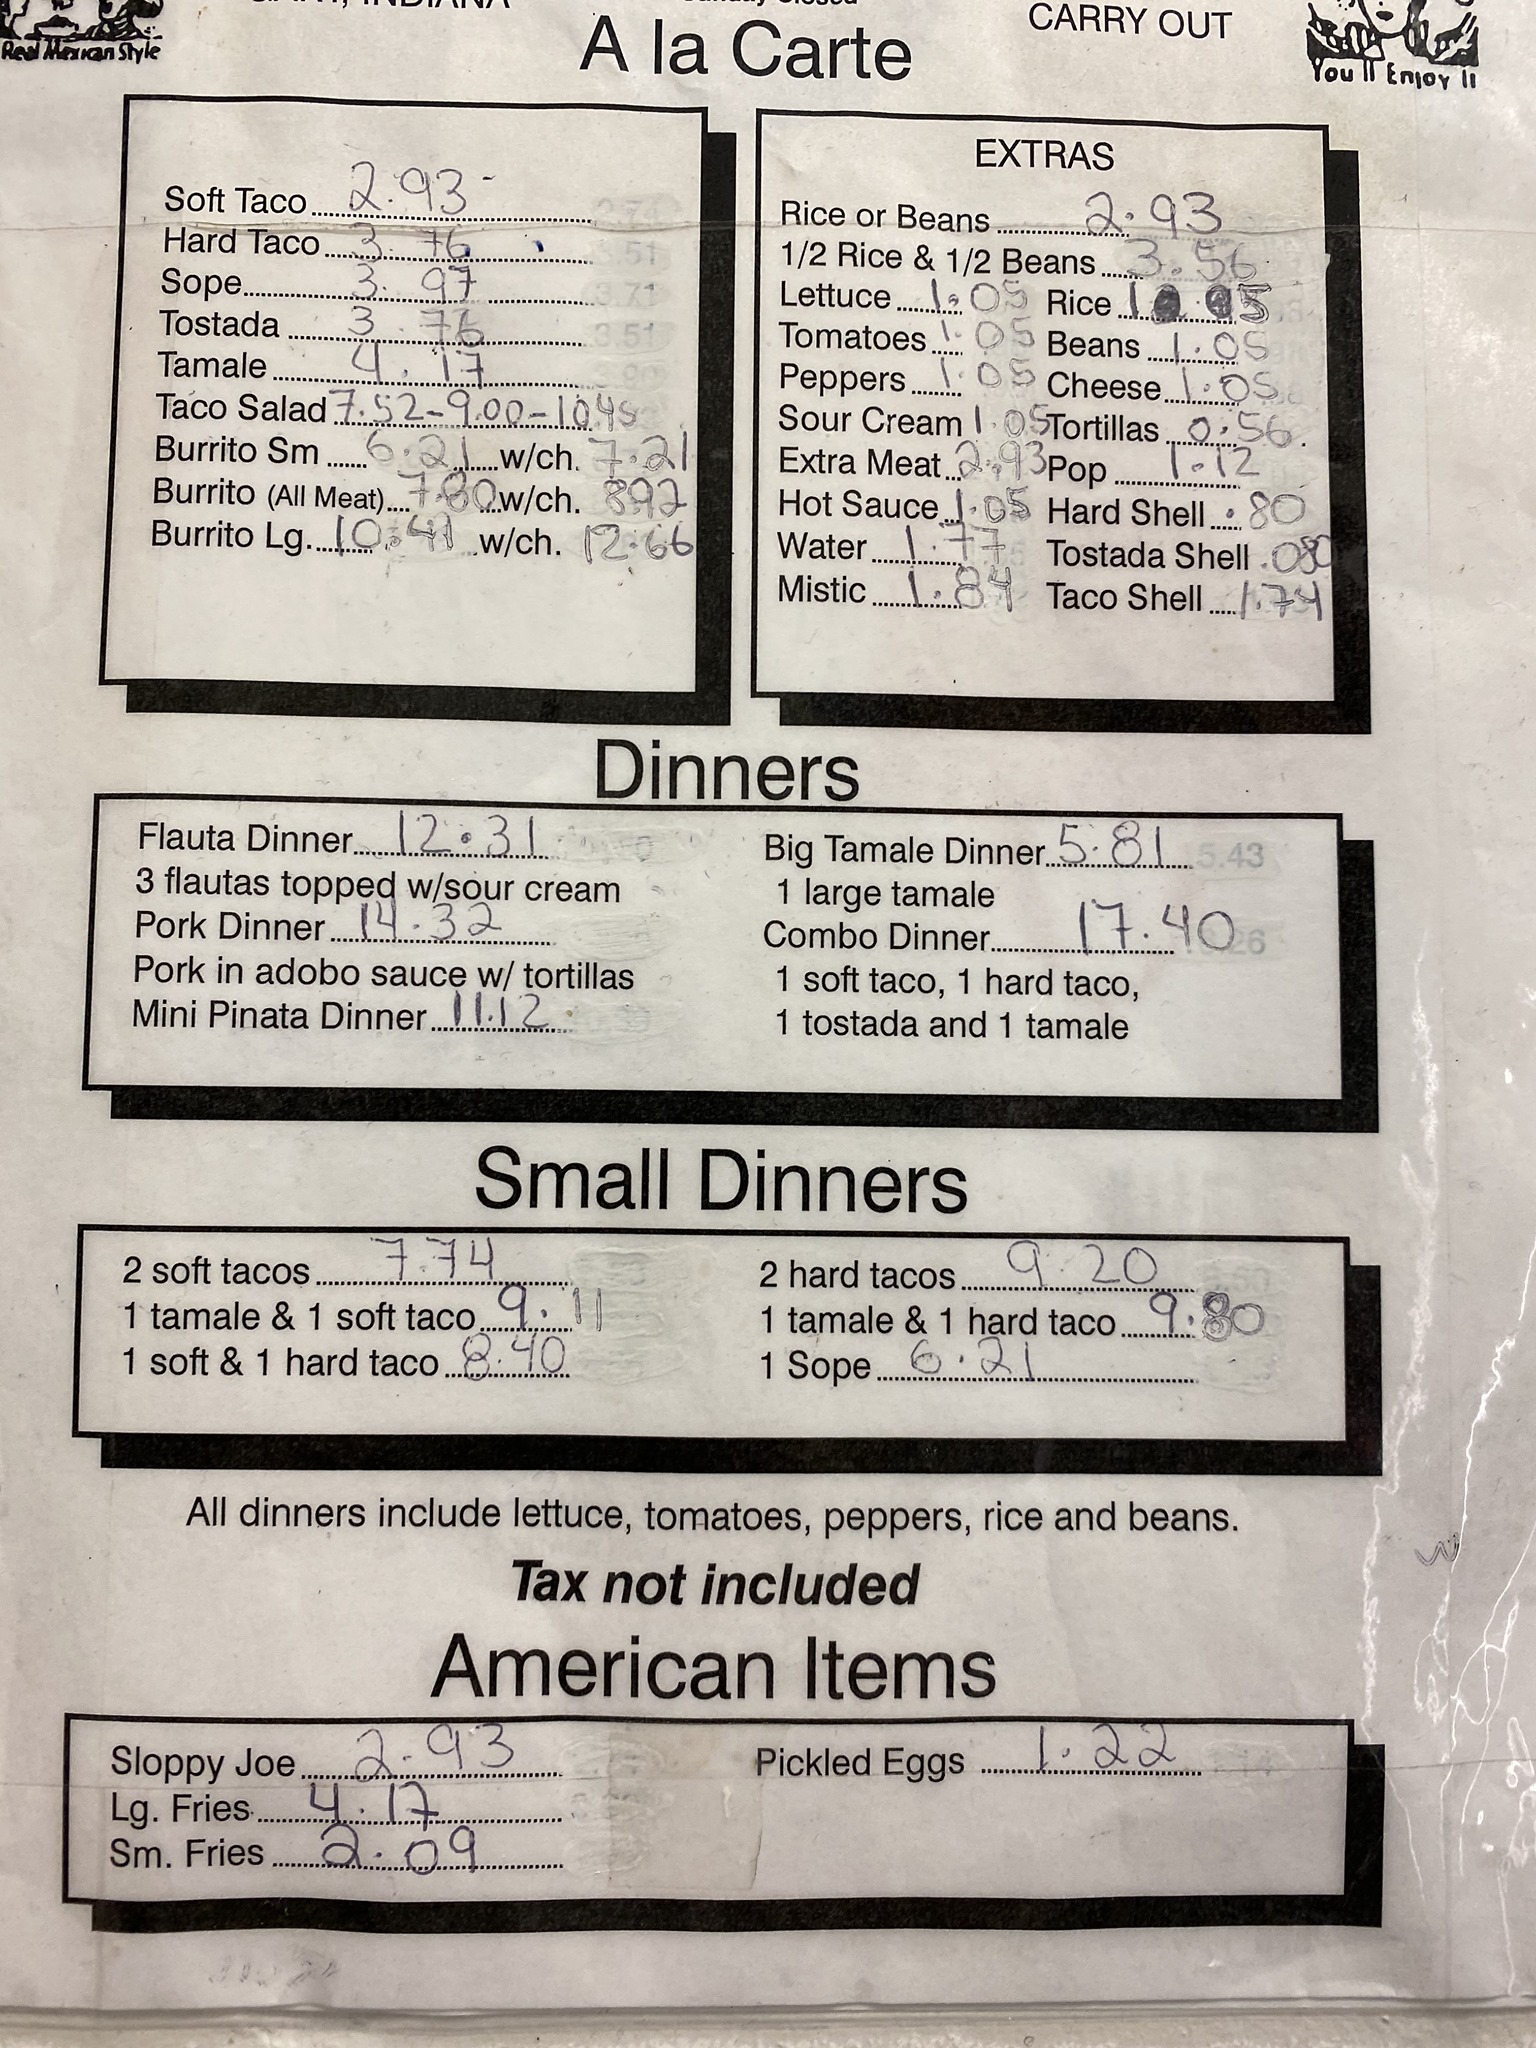 INDIANA
Sunday Closed
CARRY OUT
Real Mexican Style
A la Carte
You'll Enjoy It
Soft Taco 2.93
Hard Taco 3.76
Sope 3.97
Tostada 3.76
Tamale 4.17
Taco Salad 7.52-9.00-10.45
Burrito Sm 6.21 w/ch. 7.21
Burrito (All Meat) 7.80 w/ch. 8.92
Burrito Lg. 10.41 w/ch. 12.66
EXTRAS
Rice or Beans 2.93
1/2 Rice & 1/2 Beans 3.56
Lettuce 1.05 Rice 1.05
Tomatoes 1.05 Beans 1.05
Peppers 1.05 Cheese 1.05
Sour Cream 1.05 Tortillas 0.56
Extra Meat 2.93 Pop 1.12
Hot Sauce 1.05 Hard Shell .80
Water 1.77 Tostada Shell .080
Mistic 1.84 Taco Shell 1.74
Dinners
Flauta Dinner 12.31
3 flautas topped w/sour cream
Pork Dinner 14.32
Pork in adobo sauce w/ tortillas
Mini Pinata Dinner 11.12
Big Tamale Dinner 5.81 5.43
1 large tamale
Combo Dinner 17.40
1 soft taco, 1 hard taco,
1 tostada and 1 tamale
Small Dinners
2 soft tacos 7.74
1 tamale & 1 soft taco 9.11
1 soft & 1 hard taco 8.40
2 hard tacos 9.20
1 tamale & 1 hard taco 9.80
1 Sope 6.21
All dinners include lettuce, tomatoes, peppers, rice and beans.
Tax not included
American Items
Sloppy Joe 2.93
Lg. Fries 4.17
Sm. Fries 2.09
Pickled Eggs 1.22